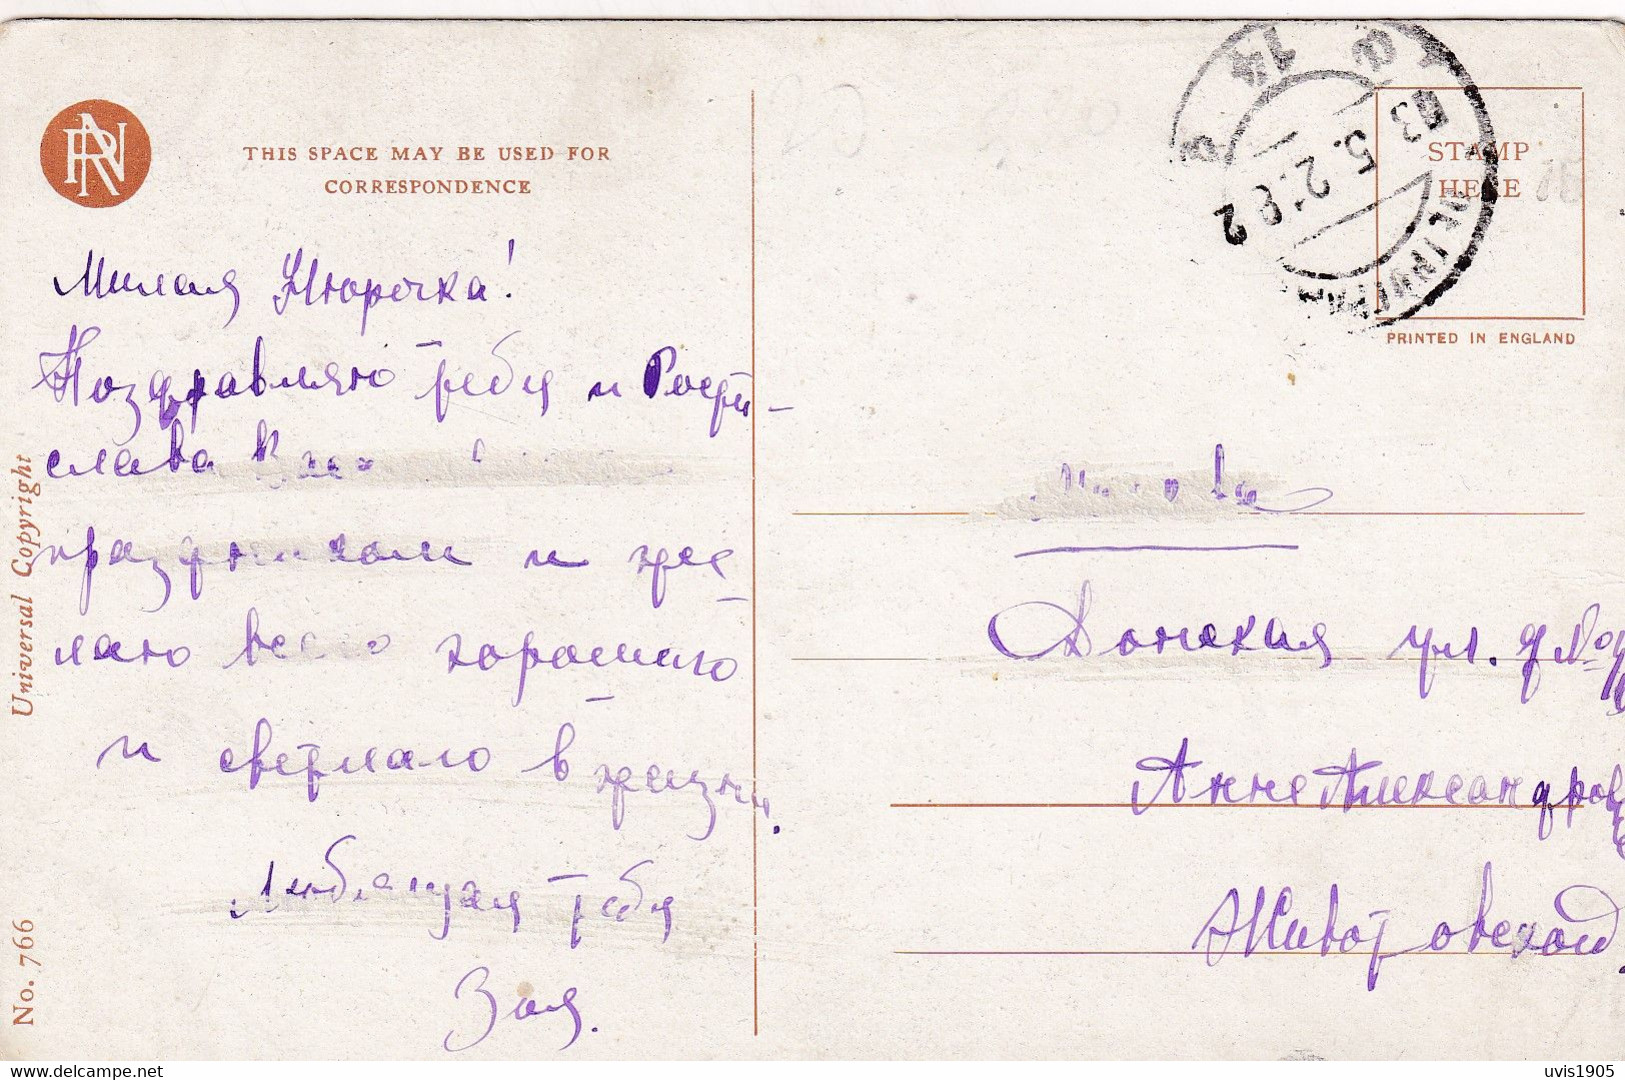 THIS SPACE MAY BE USED FOR
CORRESPONDENCE
Милая Нюрочка!
Поздравляю тебя и Рости-
слава
праздником и же-
лаю всего хорошаго
и светлаго в жизни.
Любящая тебя
Зоя.
Universal Copyright
No. 766
5.2.18 2
STAMP
HERE
PRINTED IN ENGLAND
Донская ул. д №
Анне Александровне
Животовской
Delcampe.net
uvis1905